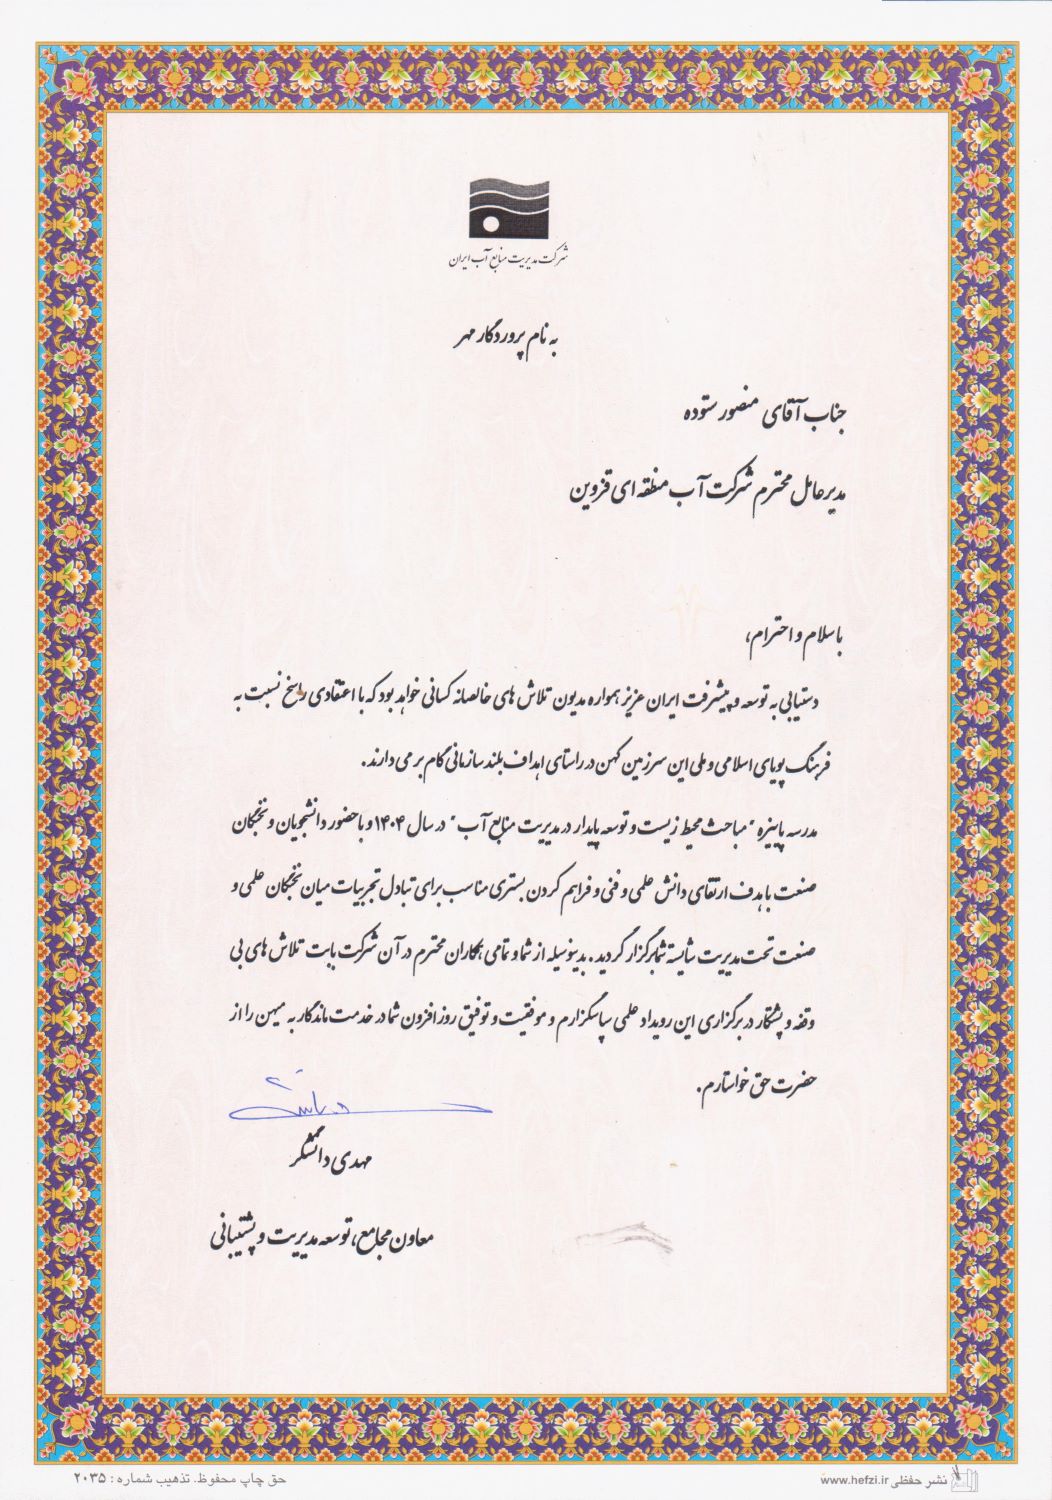 شرکت مدیریت منابع آب ایران
به نام پروردگار مهر
جناب آقای منصور ستوده
مدیرعامل محترم شرکت آب منطقه ای قزوین
با سلام و احترام،
دستیابی به توسعه و پیشرفت ایران عزیز همواره مدیون تلاش های خالصانه کسانی خواهد بود که با اعتقادی راسخ نسبت به
فرهنگ پویای اسلامی و ملی این سرزمین کهن در راستای اهداف بلند سازمانی گام بر می دارند.
مدرسه پاییزه "مباحث محیط زیست و توسعه پایدار در مدیریت منابع آب" در سال ۱۴۰۴ و با حضور دانشجویان و نخبگان
صنعت با هدف ارتقای دانش علمی و فنی و فراهم کردن بستری مناسب برای تبادل تجربیات میان نخبگان علمی و
صنعت تحت مدیریت شایسته شما برگزار گردید. بدینوسیله از شما و تمامی همکاران محترم در آن شرکت بابت تلاش های بی
وقفه و پشتکار در برگزاری این رویداد علمی سپاسگزارم و موفقیت و توفیق روز افزون شما در خدمت ماندگار به میهن را از
حضرت حق خواستارم.
مهدی دانشگر
معاون مجامع، توسعه مدیریت و پشتیبانی
نشر حفظی www.hefzi.ir
حق چاپ محفوظ. تذهیب شماره : ۲۰۳۵